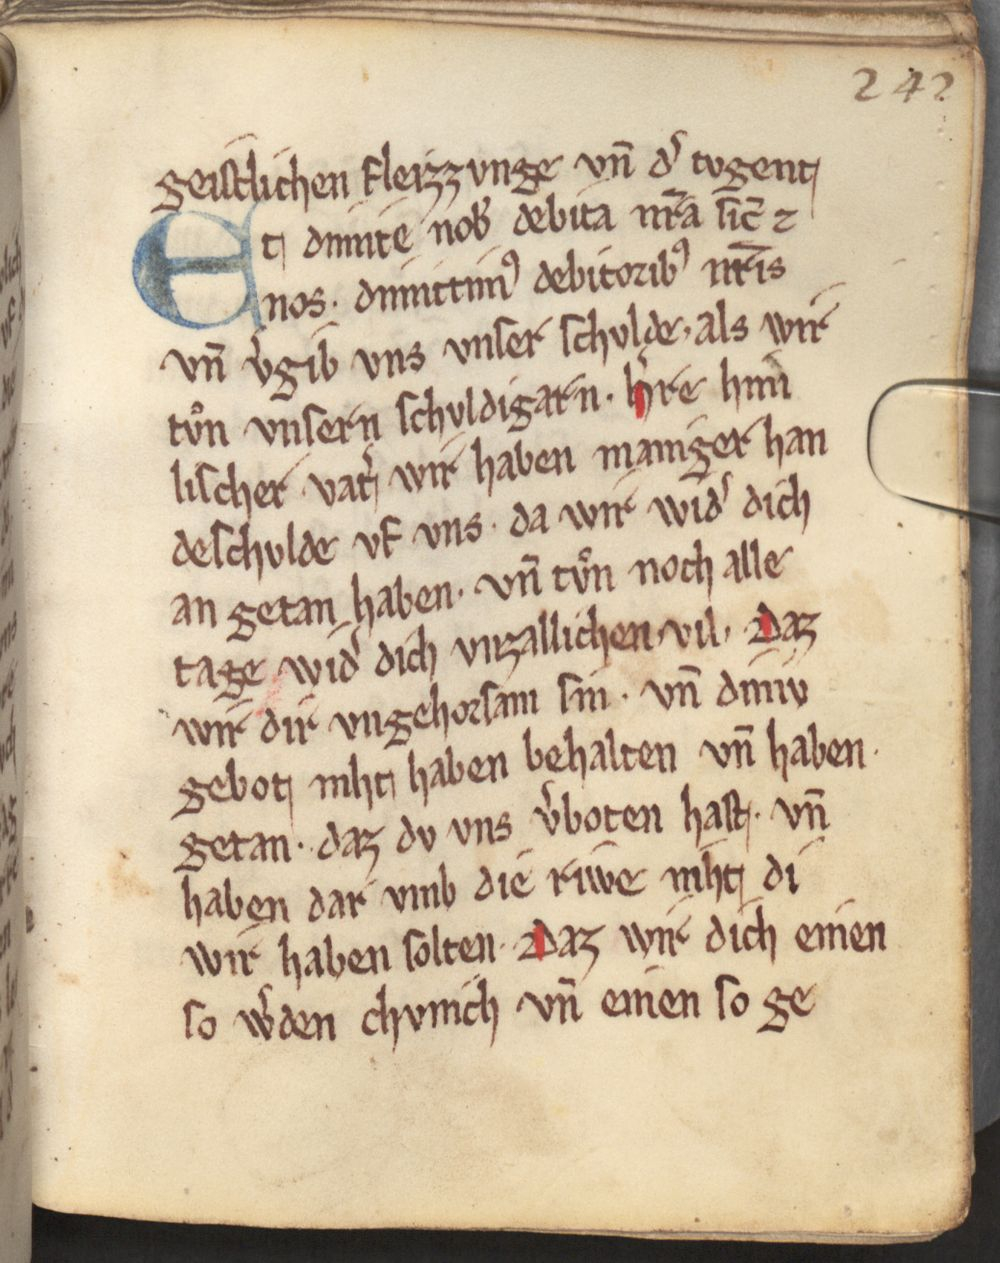 242
geistlichen fleizzvnge vn̄ d͛ tvgent
Et dimite nob̛ debita nr̄a sic̄ ⁊
nos. dimittim⁹ debitorib⁹ nr̄is
vn̄ v͛gib vns vnser schvlde. als wir
tvͦn vnsern schvldigarn. h͛re himi
lischer vat͛ wir haben maniger han
deschvlde vf vns. da wir wid͛ dich
an getan haben. vn̄ tvͦn noch alle
tage wid͛ dich vnzallichen vil. Daz
wir dir vngehorsam sin. vn̄ diniv
gebot niht haben behalten vn̄ haben.
getan. daz dv vns v͛boten hast. vn̄
haben dar vmb die riwe niht di
wir haben solten. Daz wir dich einen
so w͛den chvnich vn̄ einen so ge